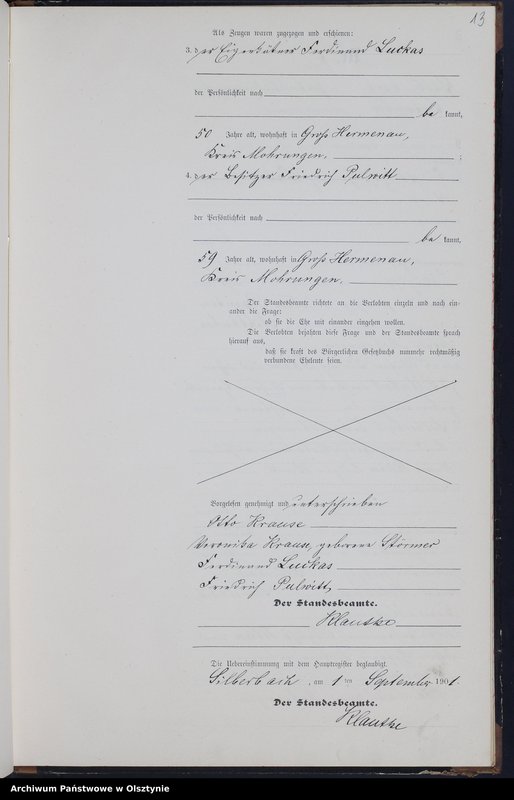 13
Als Zeugen waren zugezogen und erschienen:
3. der Eigenkätner Ferdinand Luckas
der Persönlichkeit nach
be kannt,
50 Jahre alt, wohnhaft in Groß Hermenau,
Kreis Mohrungen, ;
4. der Besitzer Friedrich Pulwitt
der Persönlichkeit nach
be kannt,
59 Jahre alt, wohnhaft in Groß Hermenau,
Kreis Mohrungen.
Der Standesbeamte richtete an die Verlobten einzeln und nach ein-
ander die Frage:
ob sie die Ehe mit einander eingehen wollen.
Die Verlobten bejahten diese Frage und der Standesbeamte sprach
hierauf aus,
daß sie kraft des Bürgerlichen Gesetzbuchs nunmehr rechtmäßig
verbundene Eheleute seien.
Vorgelesen, genehmigt und unterschrieben
Otto Krause
Veronika Krause, geborene Störmer
Ferdinand Luckas
Friedrich Pulwitt
Der Standesbeamte.
Klautke
Die Uebereinstimmung mit dem Hauptregister beglaubigt.
Silberbach, am 1 ten September 1901.
Der Standesbeamte.
Klautke
Archiwum Państwowe w Olsztynie